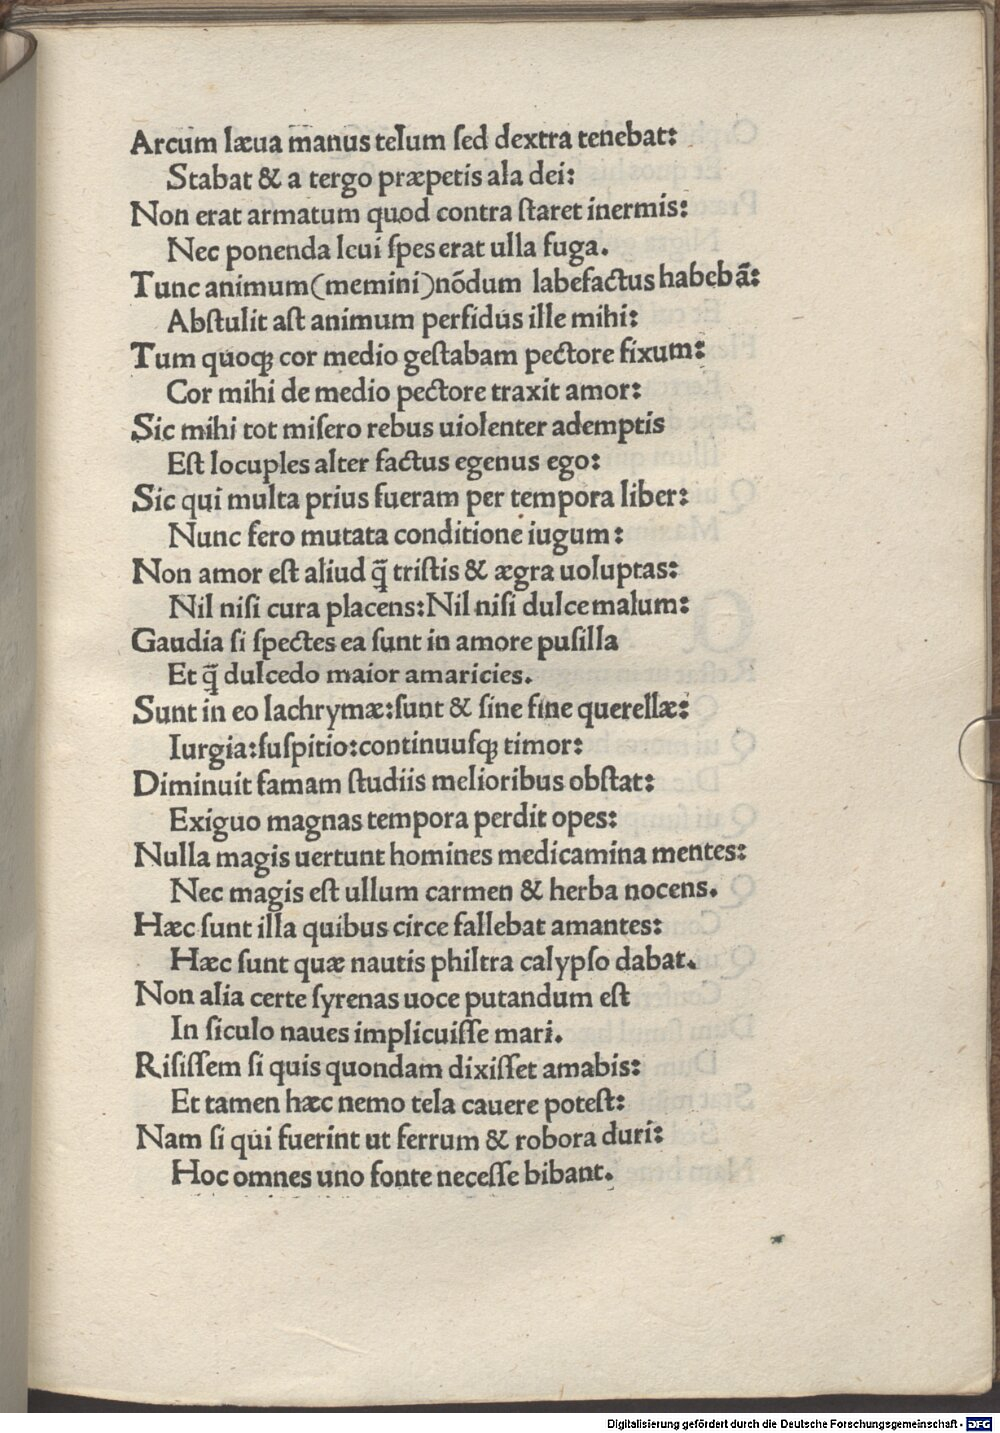 Arcum læua manus telum ſed dextra tenebat:
Stabat & a tergo præpetis ala dei:
Non erat armatum quod contra ſtaret inermis:
Nec ponenda leui ſpes erat ulla fuga.
Tunc animum(memini)nōdum labefactus habebā:
Abſtulit aſt animum perfidus ille mihi:
Tum quoqꝫ cor medio geſtabam pectore fixum:
Cor mihi de medio pectore traxit amor:
Sic mihi tot miſero rebus uiolenter ademptis
Eſt locuples alter factus egenus ego:
Sic qui multa prius fueram per tempora liber:
Nunc fero mutata conditione iugum:
Non amor eſt aliud q̄ triſtis & ægra uoluptas:
Nil niſi cura placens:Nil niſi dulce malum:
Gaudia ſi ſpectes ea ſunt in amore puſilla
Et q̄ dulcedo maior amaricies.
Sunt in eo lachrymæ:ſunt & ſine fine querellæ:
Iurgia:ſuſpitio:continuuſqꝫ timor:
Diminuit famam ſtudiis melioribus obſtat:
Exiguo magnas tempora perdit opes:
Nulla magis uertunt homines medicamina mentes:
Nec magis eſt ullum carmen & herba nocens.
Hæc ſunt illa quibus circe fallebat amantes:
Hæc ſunt quæ nautis philtra calypſo dabat.
Non alia certe ſyrenas uoce putandum eſt
In ſiculo naues implicuiſſe mari.
Riſiſſem ſi quis quondam dixiſſet amabis:
Et tamen hæc nemo tela cauere poteſt:
Nam ſi qui fuerint ut ferrum & robora duri:
Hoc omnes uno fonte neceſſe bibant.
Digitalisierung gefördert durch die Deutsche Forschungsgemeinschaft - DFG